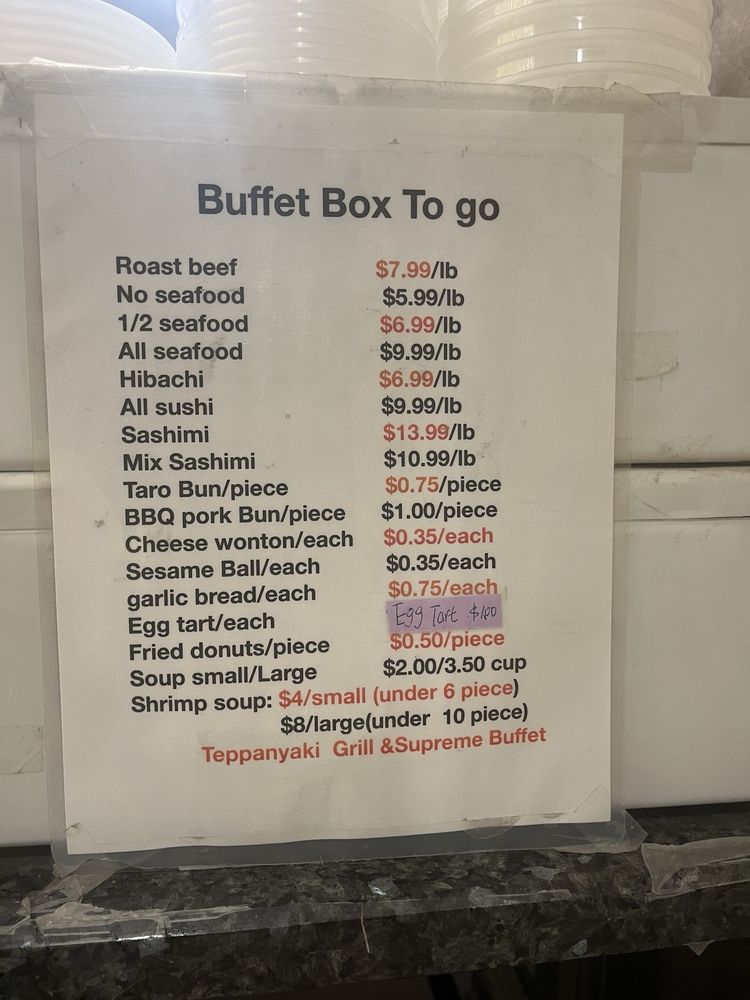 Buffet Box To go
Roast beef $7.99/lb
No seafood $5.99/lb
1/2 seafood $6.99/lb
All seafood $9.99/lb
Hibachi $6.99/lb
All sushi $9.99/lb
Sashimi $13.99/lb
Mix Sashimi $10.99/lb
Taro Bun/piece $0.75/piece
BBQ pork Bun/piece $1.00/piece
Cheese wonton/each $0.35/each
Sesame Ball/each $0.35/each
garlic bread/each $0.75/each
Egg tart/each Egg Tart $1.00
Fried donuts/piece $0.50/piece
Soup small/Large $2.00/3.50 cup
Shrimp soup: $4/small (under 6 piece)
$8/large(under 10 piece)
Teppanyaki Grill &Supreme Buffet